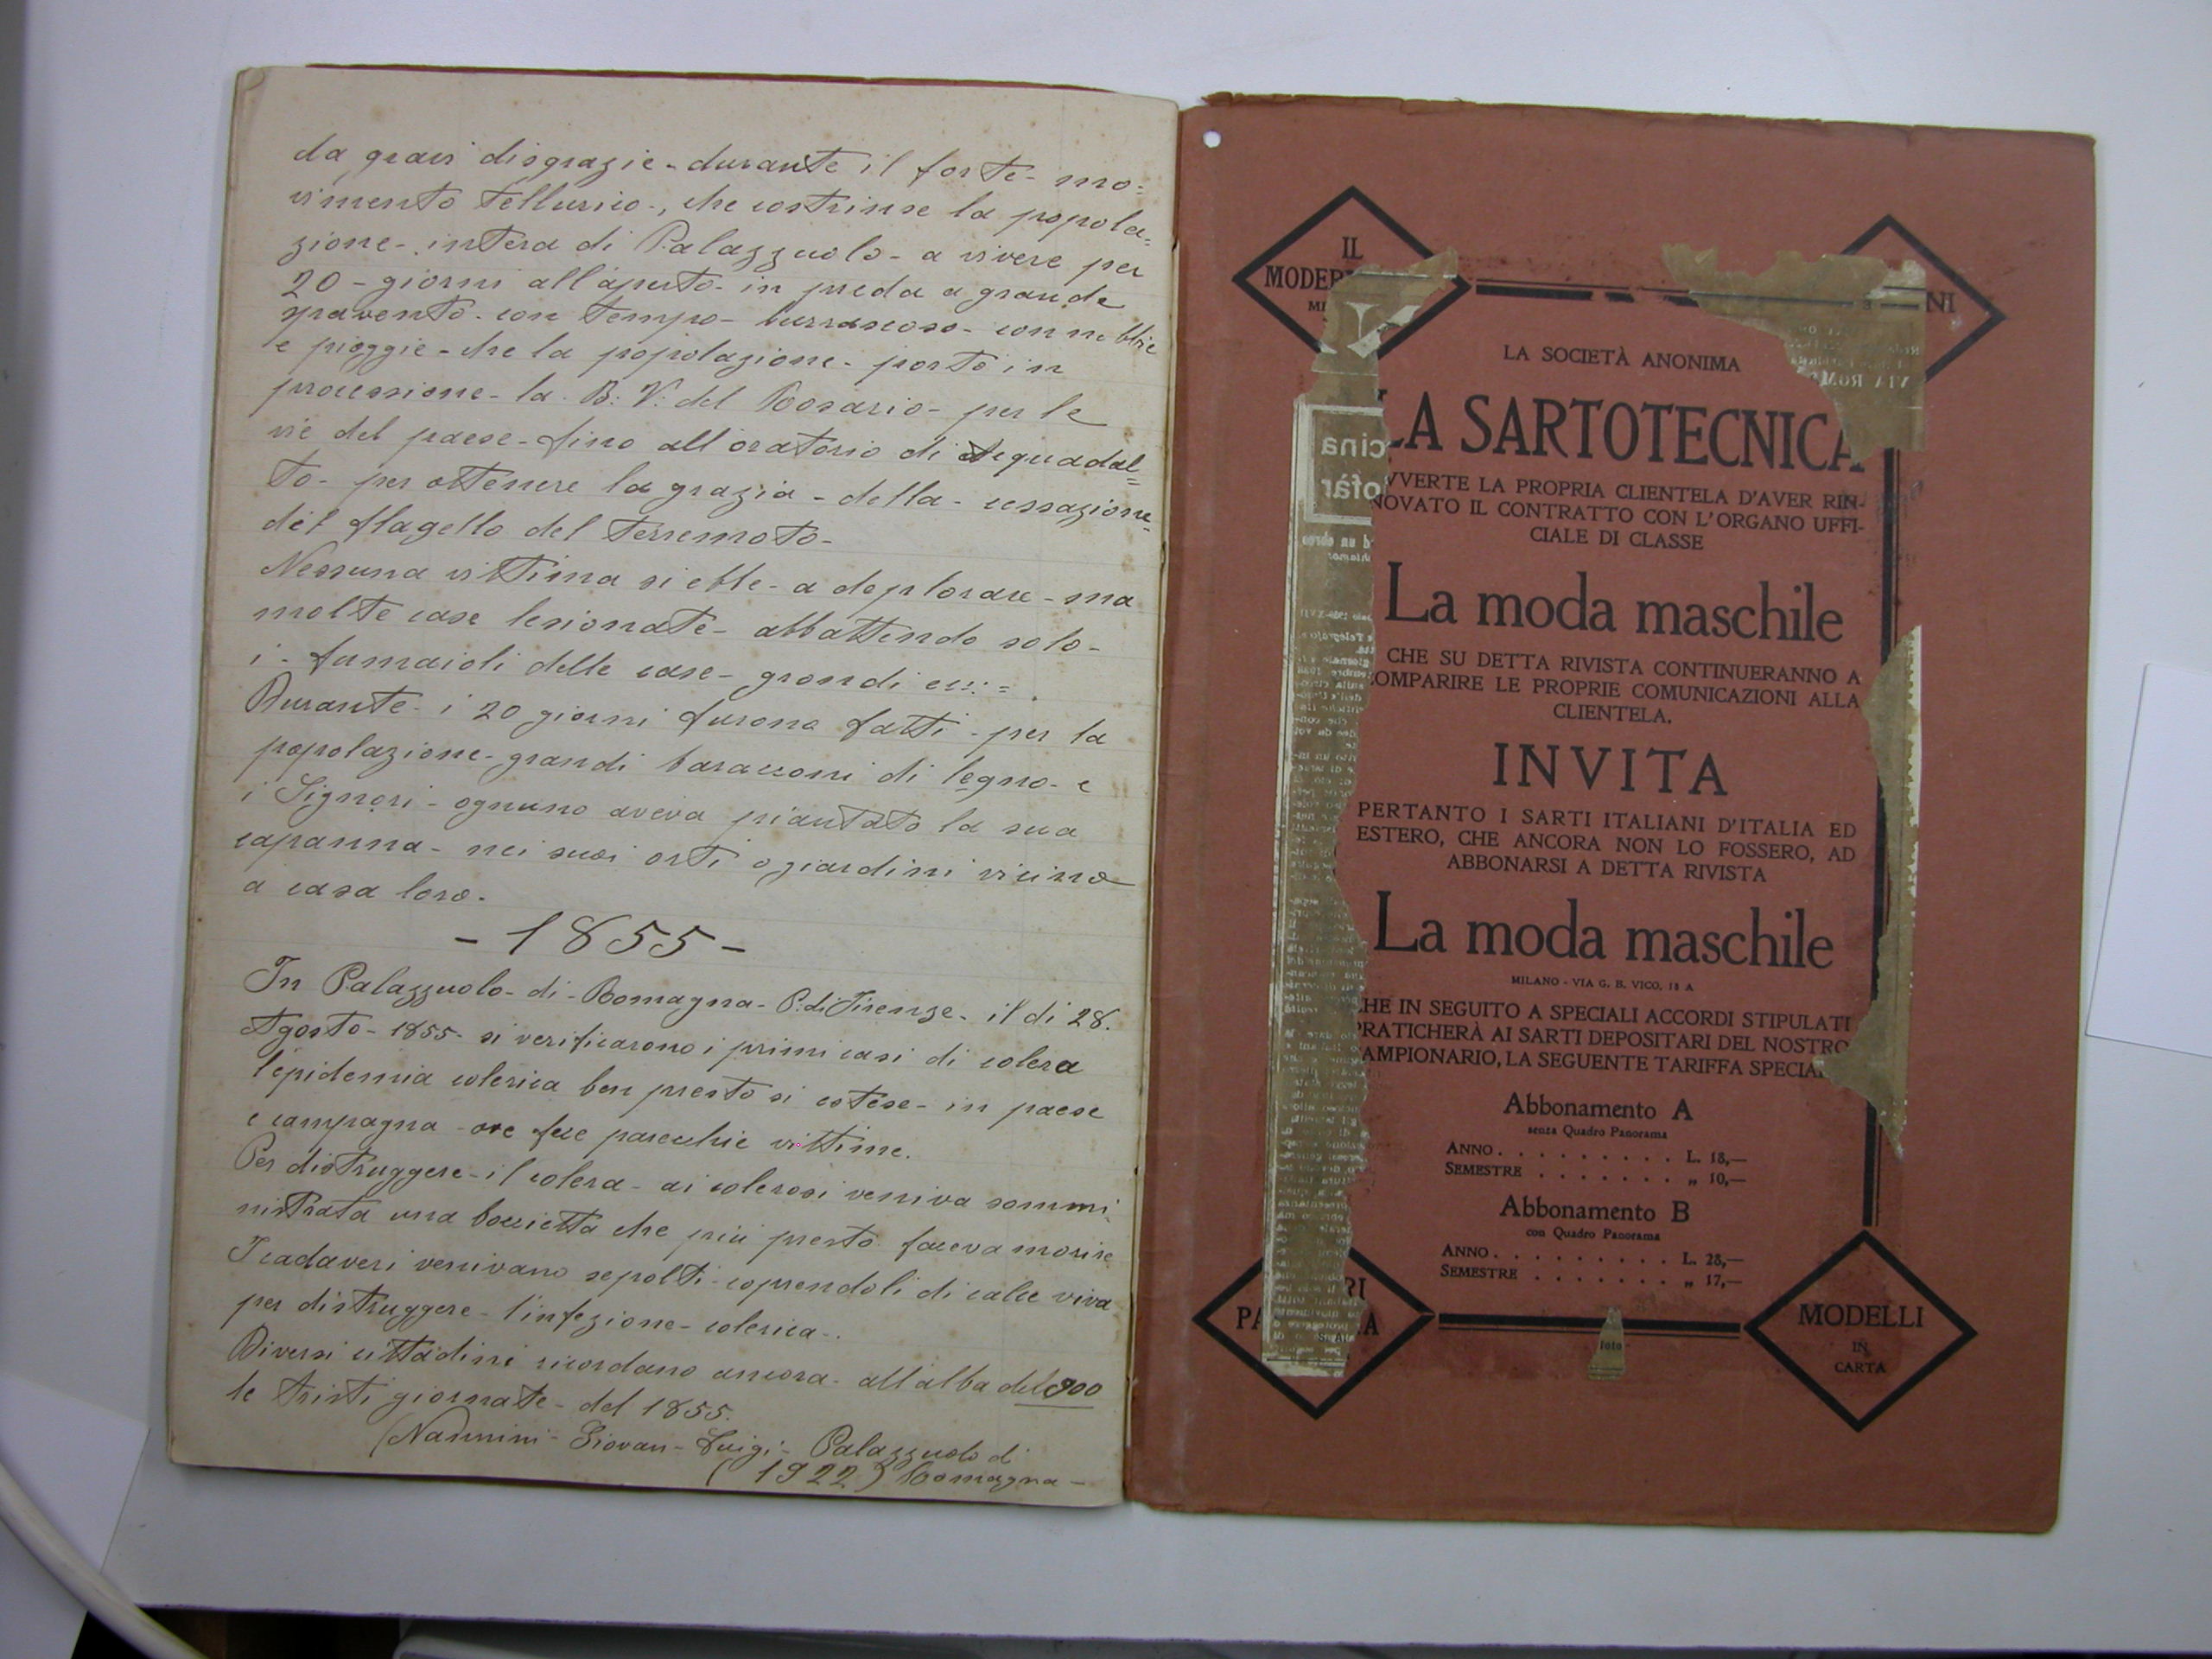 da gravi disgrazie - durante il forte mo=
vimento tellurico -, che costrinse la popola=
zione - intera di Palazzuolo - a vivere per
20 - giorni all'aperto - in preda a grande
spavento - con tempo - burrascoso - con nebbie
e pioggie - che la popolazione - portò in
processione - la B: V: del Rosario - per le
vie del paese - fino all'oratorio di Acquadal=
to - per ottenere la grazia - della - cessazione
del flagello del terremoto -
Nessuna vittima si ebbe - a deplorare - ma
molte case lesionate - abbattendo solo -
i - fumaioli delle case - grondi ecc: =
Durante - i 20 giorni furono fatti - per la
popolazione - grandi baracconi di legno - e
i Signori - ognuno aveva piantato la sua
capanna - nei suoi orti o giardini vicino
a casa loro.
- 1855 -
In Palazzuolo - di - Romagna - P. di Firenze - il di 28.
Agosto - 1855 - si verificarono i primi casi di colera
l'epidemia colerica ben presto si estese - in paese
e campagna - ove fece parecchie vittime.
Per distruggere - il colera - ai colerosi veniva sommi=
nistrata una boccietta che più presto faceva morire
I cadaveri venivano sepolti - coprendoli di calce viva
per distruggere - l'infezione - colerica -.
Diversi cittadini ricordano ancora - all'alba del 900
le tristi giornate - del 1855.
(Nannini - Giovan - Luigi - Palazzuolo di
(1922) Romagna -
IL
MODER
MI
NI
VIA ROM
LA SOCIETÀ ANONIMA
LA SARTOTECNICA
VVERTE LA PROPRIA CLIENTELA D'AVER RIN-
NOVATO IL CONTRATTO CON L'ORGANO UFFI-
CIALE DI CLASSE
La moda maschile
CHE SU DETTA RIVISTA CONTINUERANNO A
COMPARIRE LE PROPRIE COMUNICAZIONI ALLA
CLIENTELA.
INVITA
PERTANTO I SARTI ITALIANI D'ITALIA ED
ESTERO, CHE ANCORA NON LO FOSSERO, AD
ABBONARSI A DETTA RIVISTA
La moda maschile
MILANO - VIA G. B. VICO, 18 A
CHE IN SEGUITO A SPECIALI ACCORDI STIPULATI
PRATICHERÀ AI SARTI DEPOSITARI DEL NOSTRO
AMPIONARIO, LA SEGUENTE TARIFFA SPECIA
Abbonamento A
senza Quadro Panorama
ANNO . . . . . . . . . L. 18,—
SEMESTRE . . . . . . . „ 10,—
Abbonamento B
con Quadro Panorama
ANNO . . . . . . . . . L. 28,—
SEMESTRE . . . . . . . „ 17,—
RI
PA
A
foto
MODELLI
IN
CARTA